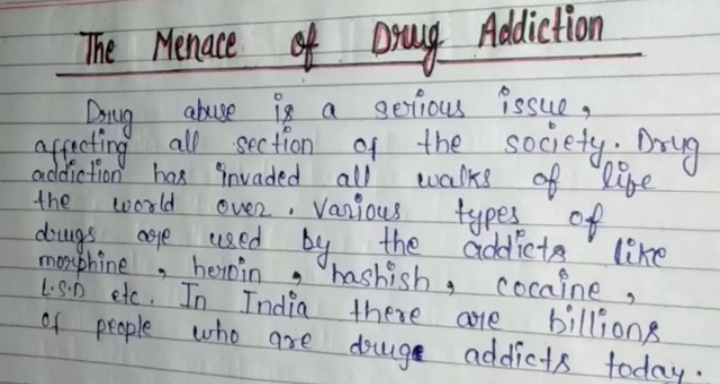 The Menace of Drug Addiction
Drug abuse is a serious issue,
affecting all section of the society. Drug
addiction has invaded all walks of life
the world over. Various types of
drugs are used by the addicts like
morphine, heroin, hashish, cocaine,
L.S.D etc. In India there are billions
of people who are drugs addicts today.